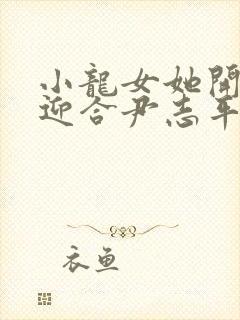 小龍女她開
迎合尹志平
衣魚